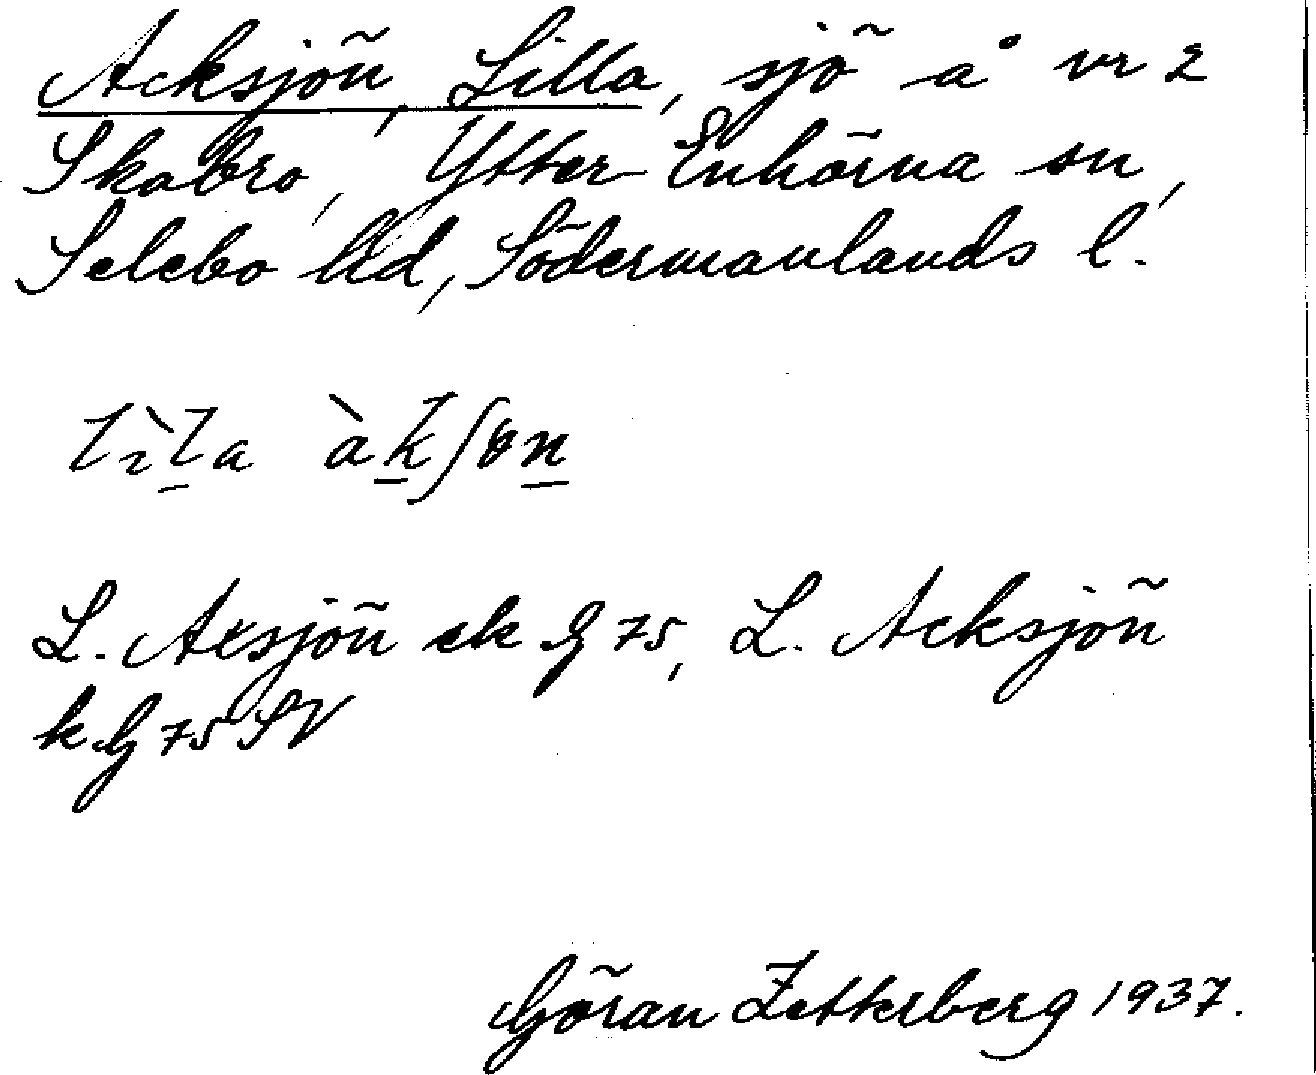 Acksjön, Lilla, sjö å nr 2
Skabro, Ytter-Enhörna sn,
Selebo hd, Södermanlands l.
lìla àkʃɵn
L. Axsjön ek bg 75, L. Acksjön
k bg 75 SV
Göran Zetterberg 1937.